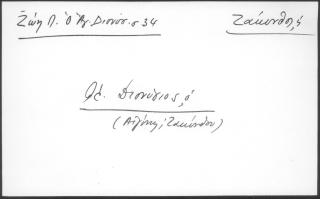 Ζώη Π. Ὁ Ἅγ. Διονύσ. σ 34
Ζάκυνθος, ἡ
Ἅγ. Διονύσιος, ὁ
(Αἰγίνης, Ζακύνθου)